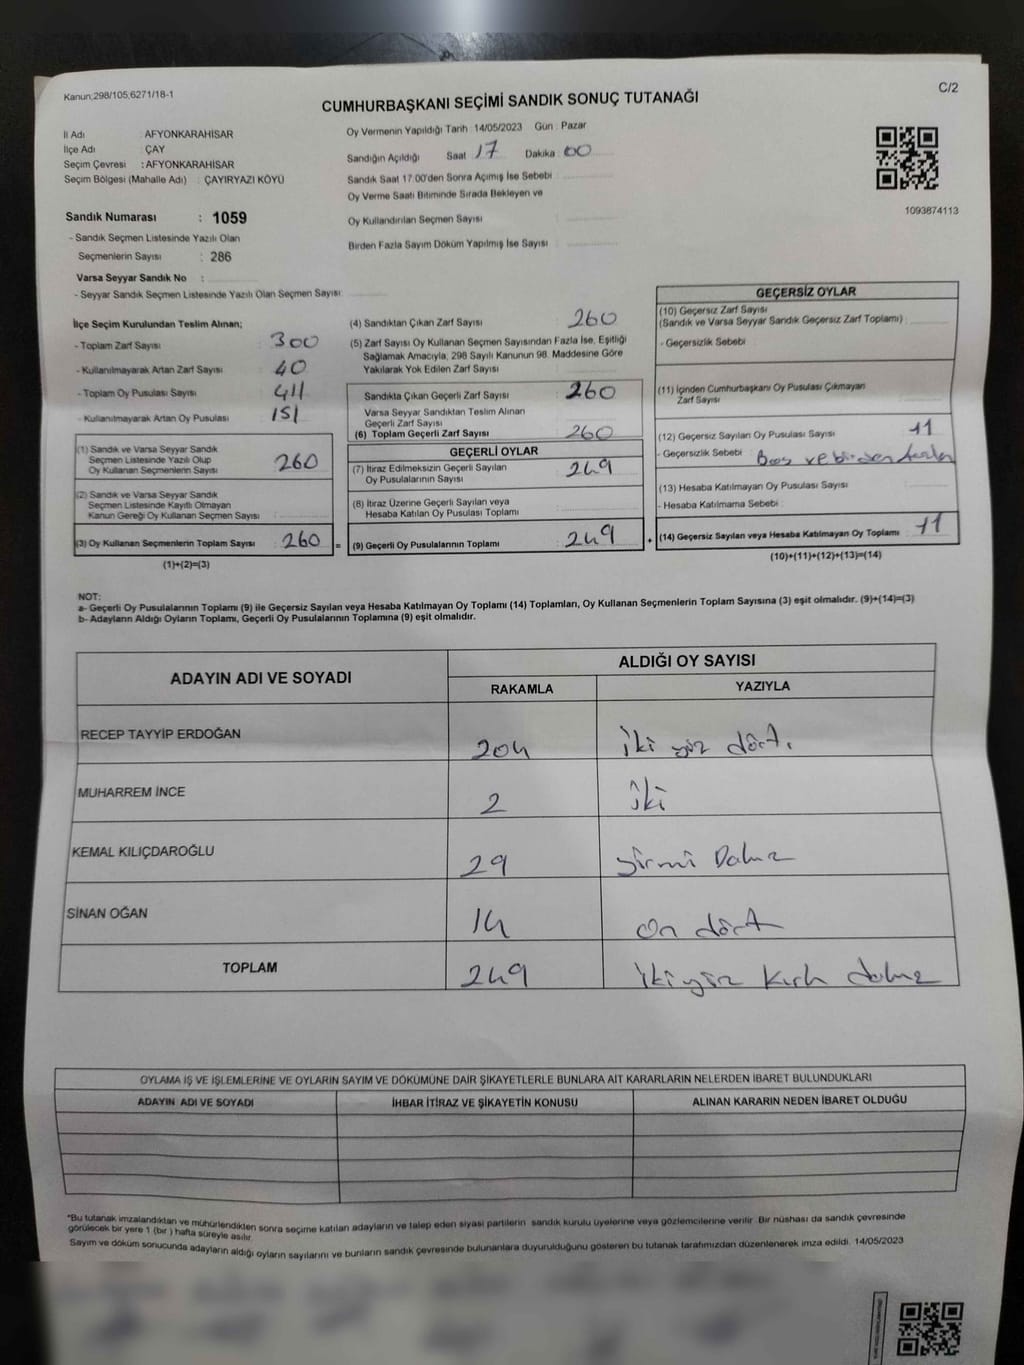 Kanun;298/105;6271/18-1
C/2
CUMHURBAŞKANI SEÇİMİ SANDIK SONUÇ TUTANAĞI
İl Adı : AFYONKARAHİSAR
İlçe Adı : ÇAY
Seçim Çevresi : AFYONKARAHİSAR
Seçim Bölgesi (Mahalle Adı) : ÇAYIRYAZI KÖYÜ
Sandık Numarası : 1059
- Sandık Seçmen Listesinde Yazılı Olan
Seçmenlerin Sayısı : 286
Varsa Seyyar Sandık No :
- Seyyar Sandık Seçmen Listesinde Yazılı Olan Seçmen Sayısı
Oy Vermenin Yapıldığı Tarih : 14/05/2023 Gün : Pazar
Sandığın Açıldığı Saat 17 Dakika : 00
Sandık Saat 17.00'den Sonra Açımış İse Sebebi
Oy Verme Saati Bitiminde Sırada Bekleyen ve
Oy Kullandırılan Seçmen Sayısı
Birden Fazla Sayım Döküm Yapılmış İse Sayısı
1093874113
İlçe Seçim Kurulundan Teslim Alınan;
- Toplam Zarf Sayısı : 300
- Kullanılmayarak Artan Zarf Sayısı : 40
- Toplam Oy Pusulası Sayısı : 411
- Kullanılmayarak Artan Oy Pusulası : 151
(1) Sandık ve Varsa Seyyar Sandık
Seçmen Listesinde Yazılı Olup
Oy Kullanan Seçmenlerin Sayısı : 260
(2) Sandık ve Varsa Seyyar Sandık
Seçmen Listesinde Kayıtlı Olmayan
Kanun Gereği Oy Kullanan Seçmen Sayısı :
(3) Oy Kullanan Seçmenlerin Toplam Sayısı : 260
(1)+(2)=(3)
=
(4) Sandıktan Çıkan Zarf Sayısı : 260
(5) Zarf Sayısı Oy Kullanan Seçmen Sayısından Fazla İse, Eşitliği
Sağlamak Amacıyla, 298 Sayılı Kanunun 98. Maddesine Göre
Yakılarak Yok Edilen Zarf Sayısı
Sandıkta Çıkan Geçerli Zarf Sayısı : 260
Varsa Seyyar Sandıktan Teslim Alınan
Geçerli Zarf Sayısı
(6) Toplam Geçerli Zarf Sayısı : 260
GEÇERLİ OYLAR
(7) İtiraz Edilmeksizin Geçerli Sayılan
Oy Pusulalarının Sayısı : 249
(8) İtiraz Üzerine Geçerli Sayılan veya
Hesaba Katılan Oy Pusulası Toplamı
(9) Geçerli Oy Pusulalarının Toplamı : 249
+
GEÇERSİZ OYLAR
(10) Geçersiz Zarf Sayısı
(Sandık ve Varsa Seyyar Sandık Geçersiz Zarf Toplamı) :
- Geçersizlik Sebebi
(11) İçinden Cumhurbaşkanı Oy Pusulası Çıkmayan
Zarf Sayısı
(12) Geçersiz Sayılan Oy Pusulası Sayısı : 11
- Geçersizlik Sebebi : Boş ve birden fazla
(13) Hesaba Katılmayan Oy Pusulası Sayısı
- Hesaba Katılmama Sebebi
(14) Geçersiz Sayılan veya Hesaba Katılmayan Oy Toplamı : 11
(10)+(11)+(12)+(13)=(14)
NOT:
a- Geçerli Oy Pusulalarının Toplamı (9) ile Geçersiz Sayılan veya Hesaba Katılmayan Oy Toplamı (14) Toplamları, Oy Kullanan Seçmenlerin Toplam Sayısına (3) eşit olmalıdır. (9)+(14)=(3)
b- Adayların Aldığı Oyların Toplamı, Geçerli Oy Pusulalarının Toplamına (9) eşit olmalıdır.
ADAYIN ADI VE SOYADI
ALDIĞI OY SAYISI
RAKAMLA YAZIYLA
RECEP TAYYİP ERDOĞAN 204 iki yüz dört.
MUHARREM İNCE 2 iki
KEMAL KILIÇDAROĞLU 29 yirmi Dokuz
SİNAN OĞAN 14 on dört
TOPLAM 249 ikiyüz kırk dokuz
OYLAMA İŞ VE İŞLEMLERİNE VE OYLARIN SAYIM VE DÖKÜMÜNE DAİR ŞİKAYETLERLE BUNLARA AİT KARARLARIN NELERDEN İBARET BULUNDUKLARI
ADAYIN ADI VE SOYADI İHBAR İTİRAZ VE ŞİKAYETİN KONUSU ALINAN KARARIN NEDEN İBARET OLDUĞU
*Bu tutanak imzalandıktan ve mühürlendikten sonra seçime katılan adayların ve talep eden siyasi partilerin sandık kurulu üyelerine veya gözlemcilerine verilir. Bir nüshası da sandık çevresinde
görülecek bir yere 1 (bir ) hafta süreyle asılır.
Sayım ve döküm sonucunda adayların aldığı oyların sayılarını ve bunların sandık çevresinde bulunanlara duyurulduğunu gösteren bu tutanak tarafımızdan düzenlenerek imza edildi. 14/05/2023